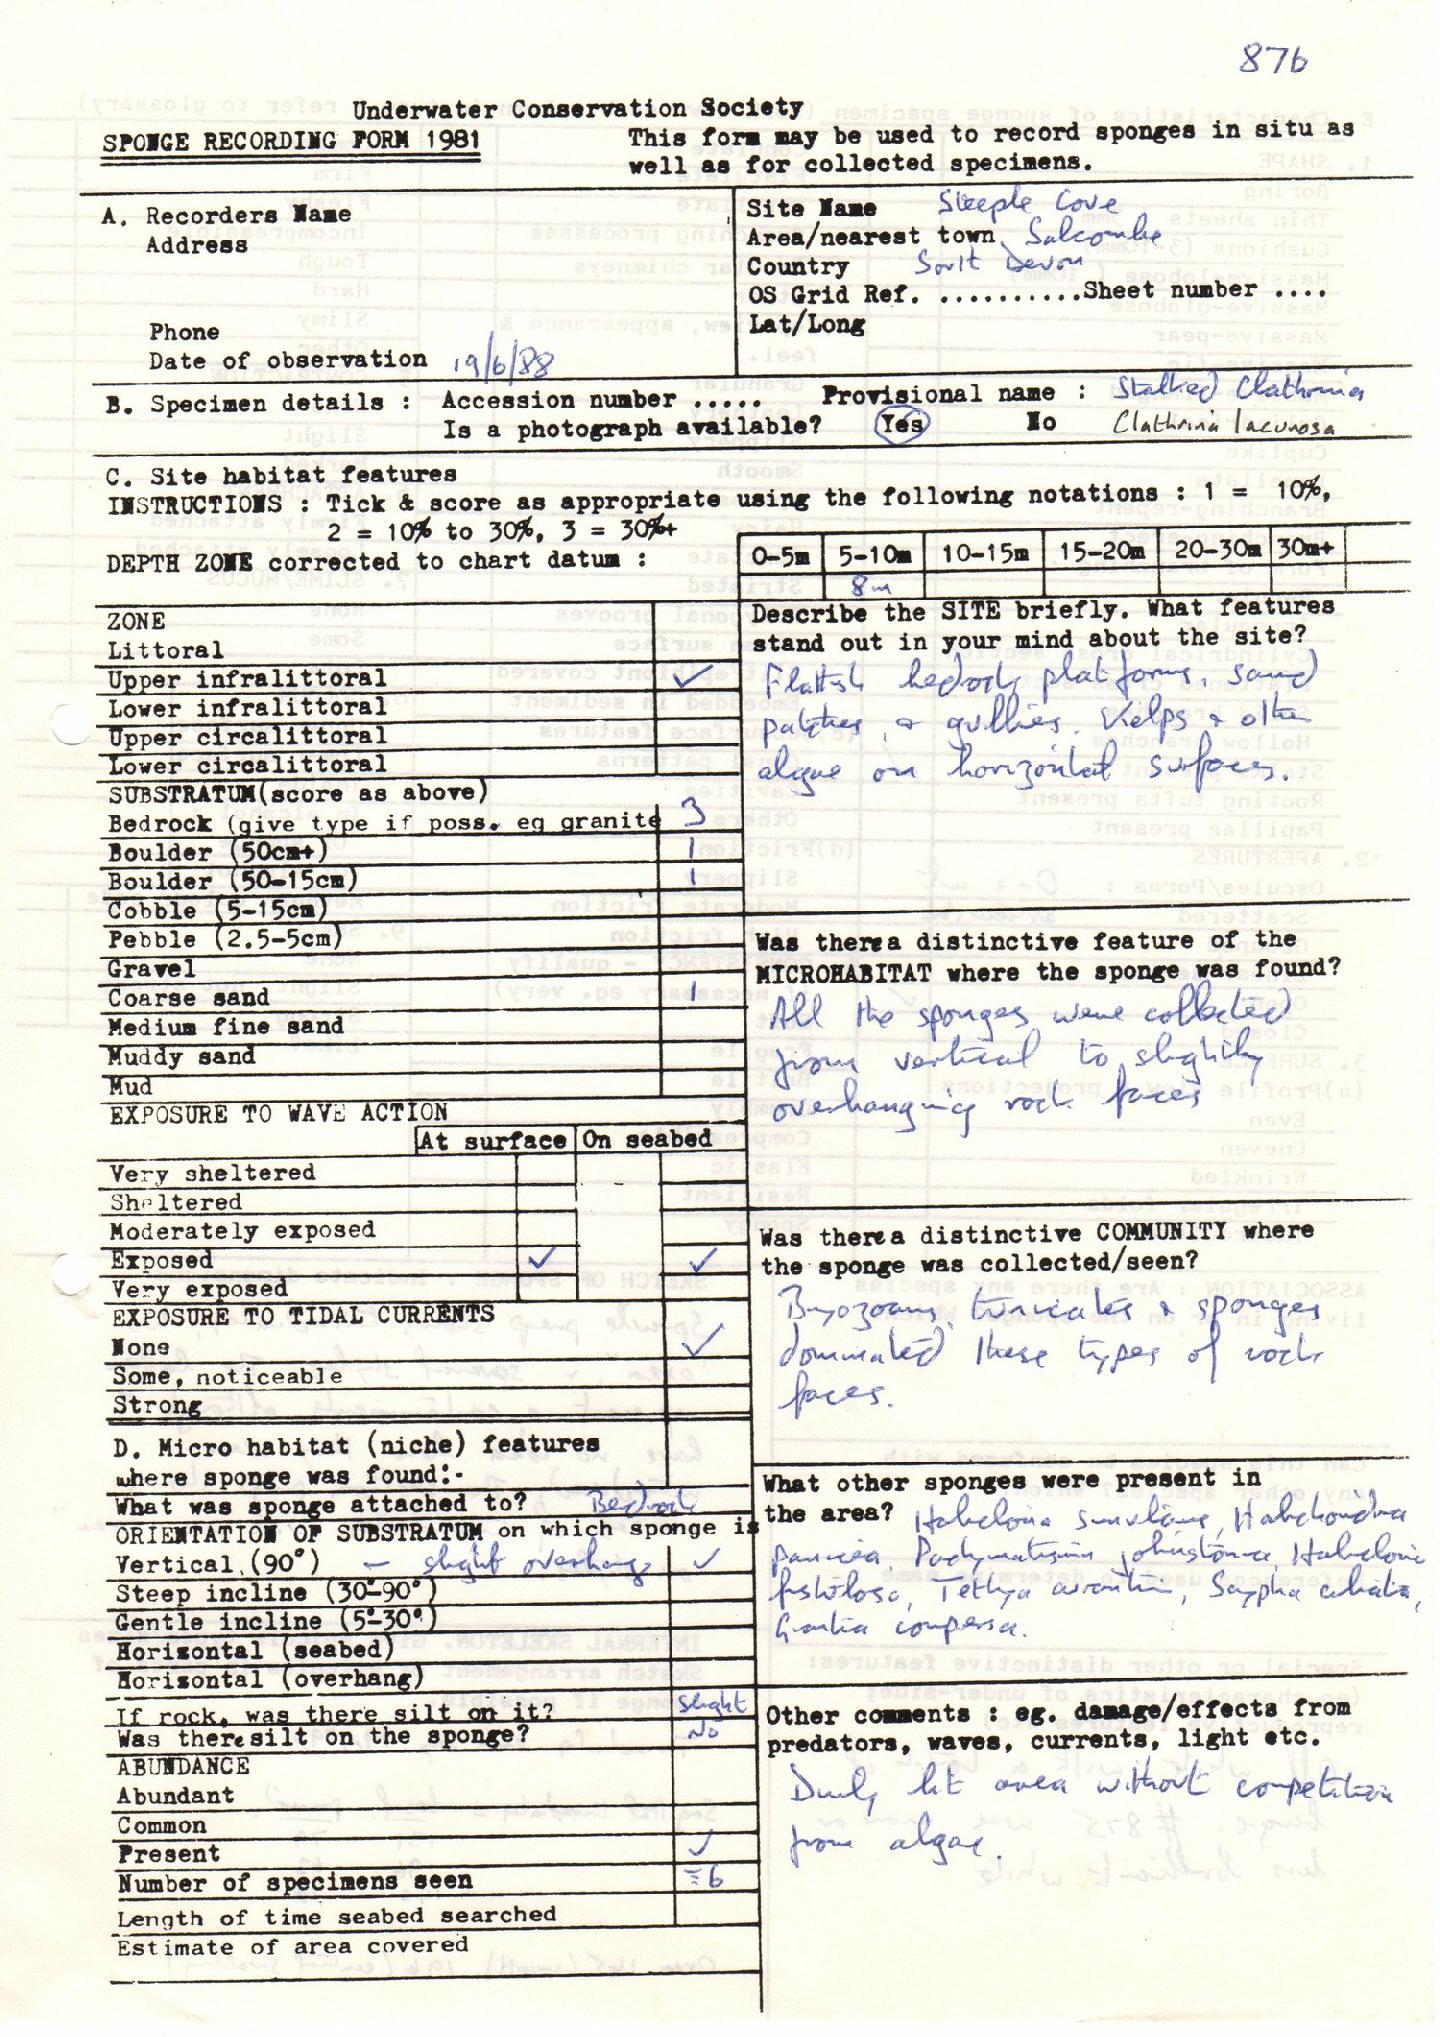 876
Underwater Conservation Society
SPONGE RECORDING FORM 1981
This form may be used to record sponges in situ as
well as for collected specimens.
A. Recorders Name
Address
Phone
Date of observation 19/6/88
Site Name Steeple Cove
Area/nearest town Salcombe
Country South Devon
OS Grid Ref. ..........Sheet number ....
Lat/Long
B. Specimen details : Accession number ..... Provisional name : Stalked Clathrina
Is a photograph available? Yes No Clathrina lacunosa
C. Site habitat features
INSTRUCTIONS : Tick & score as appropriate using the following notations : 1 = 10%,
2 = 10% to 30%, 3 = 30%+
DEPTH ZONE corrected to chart datum :
0-5m 5-10m 10-15m 15-20m 20-30m 30m+
8m
ZONE
Littoral
Upper infralittoral ✓
Lower infralittoral
Upper circalittoral
Lower circalittoral
SUBSTRATUM(score as above)
Bedrock (give type if poss. eg granite 3
Boulder (50cm+) 1
Boulder (50-15cm) 1
Cobble (5-15cm)
Pebble (2.5-5cm)
Gravel
Coarse sand 1
Medium fine sand
Muddy sand
Mud
EXPOSURE TO WAVE ACTION
At surface On seabed
Very sheltered
Sheltered
Moderately exposed
Exposed ✓ ✓
Very exposed
EXPOSURE TO TIDAL CURRENTS
None ✓
Some, noticeable
Strong
D. Micro habitat (niche) features
where sponge was found:-
What was sponge attached to? Bedrock
ORIENTATION OF SUBSTRATUM on which sponge is
Vertical (90°) - slight overhang ✓
Steep incline (30°-90°)
Gentle incline (5°-30°)
Horizontal (seabed)
Horizontal (overhang)
If rock, was there silt on it? Slight
Was there silt on the sponge? No
ABUNDANCE
Abundant
Common
Present ✓
Number of specimens seen 6
Length of time seabed searched
Estimate of area covered
Describe the SITE briefly. What features
stand out in your mind about the site?
Flattish bedrock platforms, sand
patches, & gullies. Kelps & other
algae on horizontal surfaces.
Was there a distinctive feature of the
MICROHABITAT where the sponge was found?
All the sponges were collected
from vertical to slightly
overhanging rock faces
Was there a distinctive COMMUNITY where
the sponge was collected/seen?
Bryozoans, tunicates & sponges
dominated these types of rock
faces.
What other sponges were present in
the area? Haliclona simulans, Halichondria
panicea, Pachymatisma johnstonia, Haliclona
fistulosa, Tethya aurantium, Scypha ciliata,
Grantia compressa.
Other comments : eg. damage/effects from
predators, waves, currents, light etc.
Dimly lit area without competition
from algae.